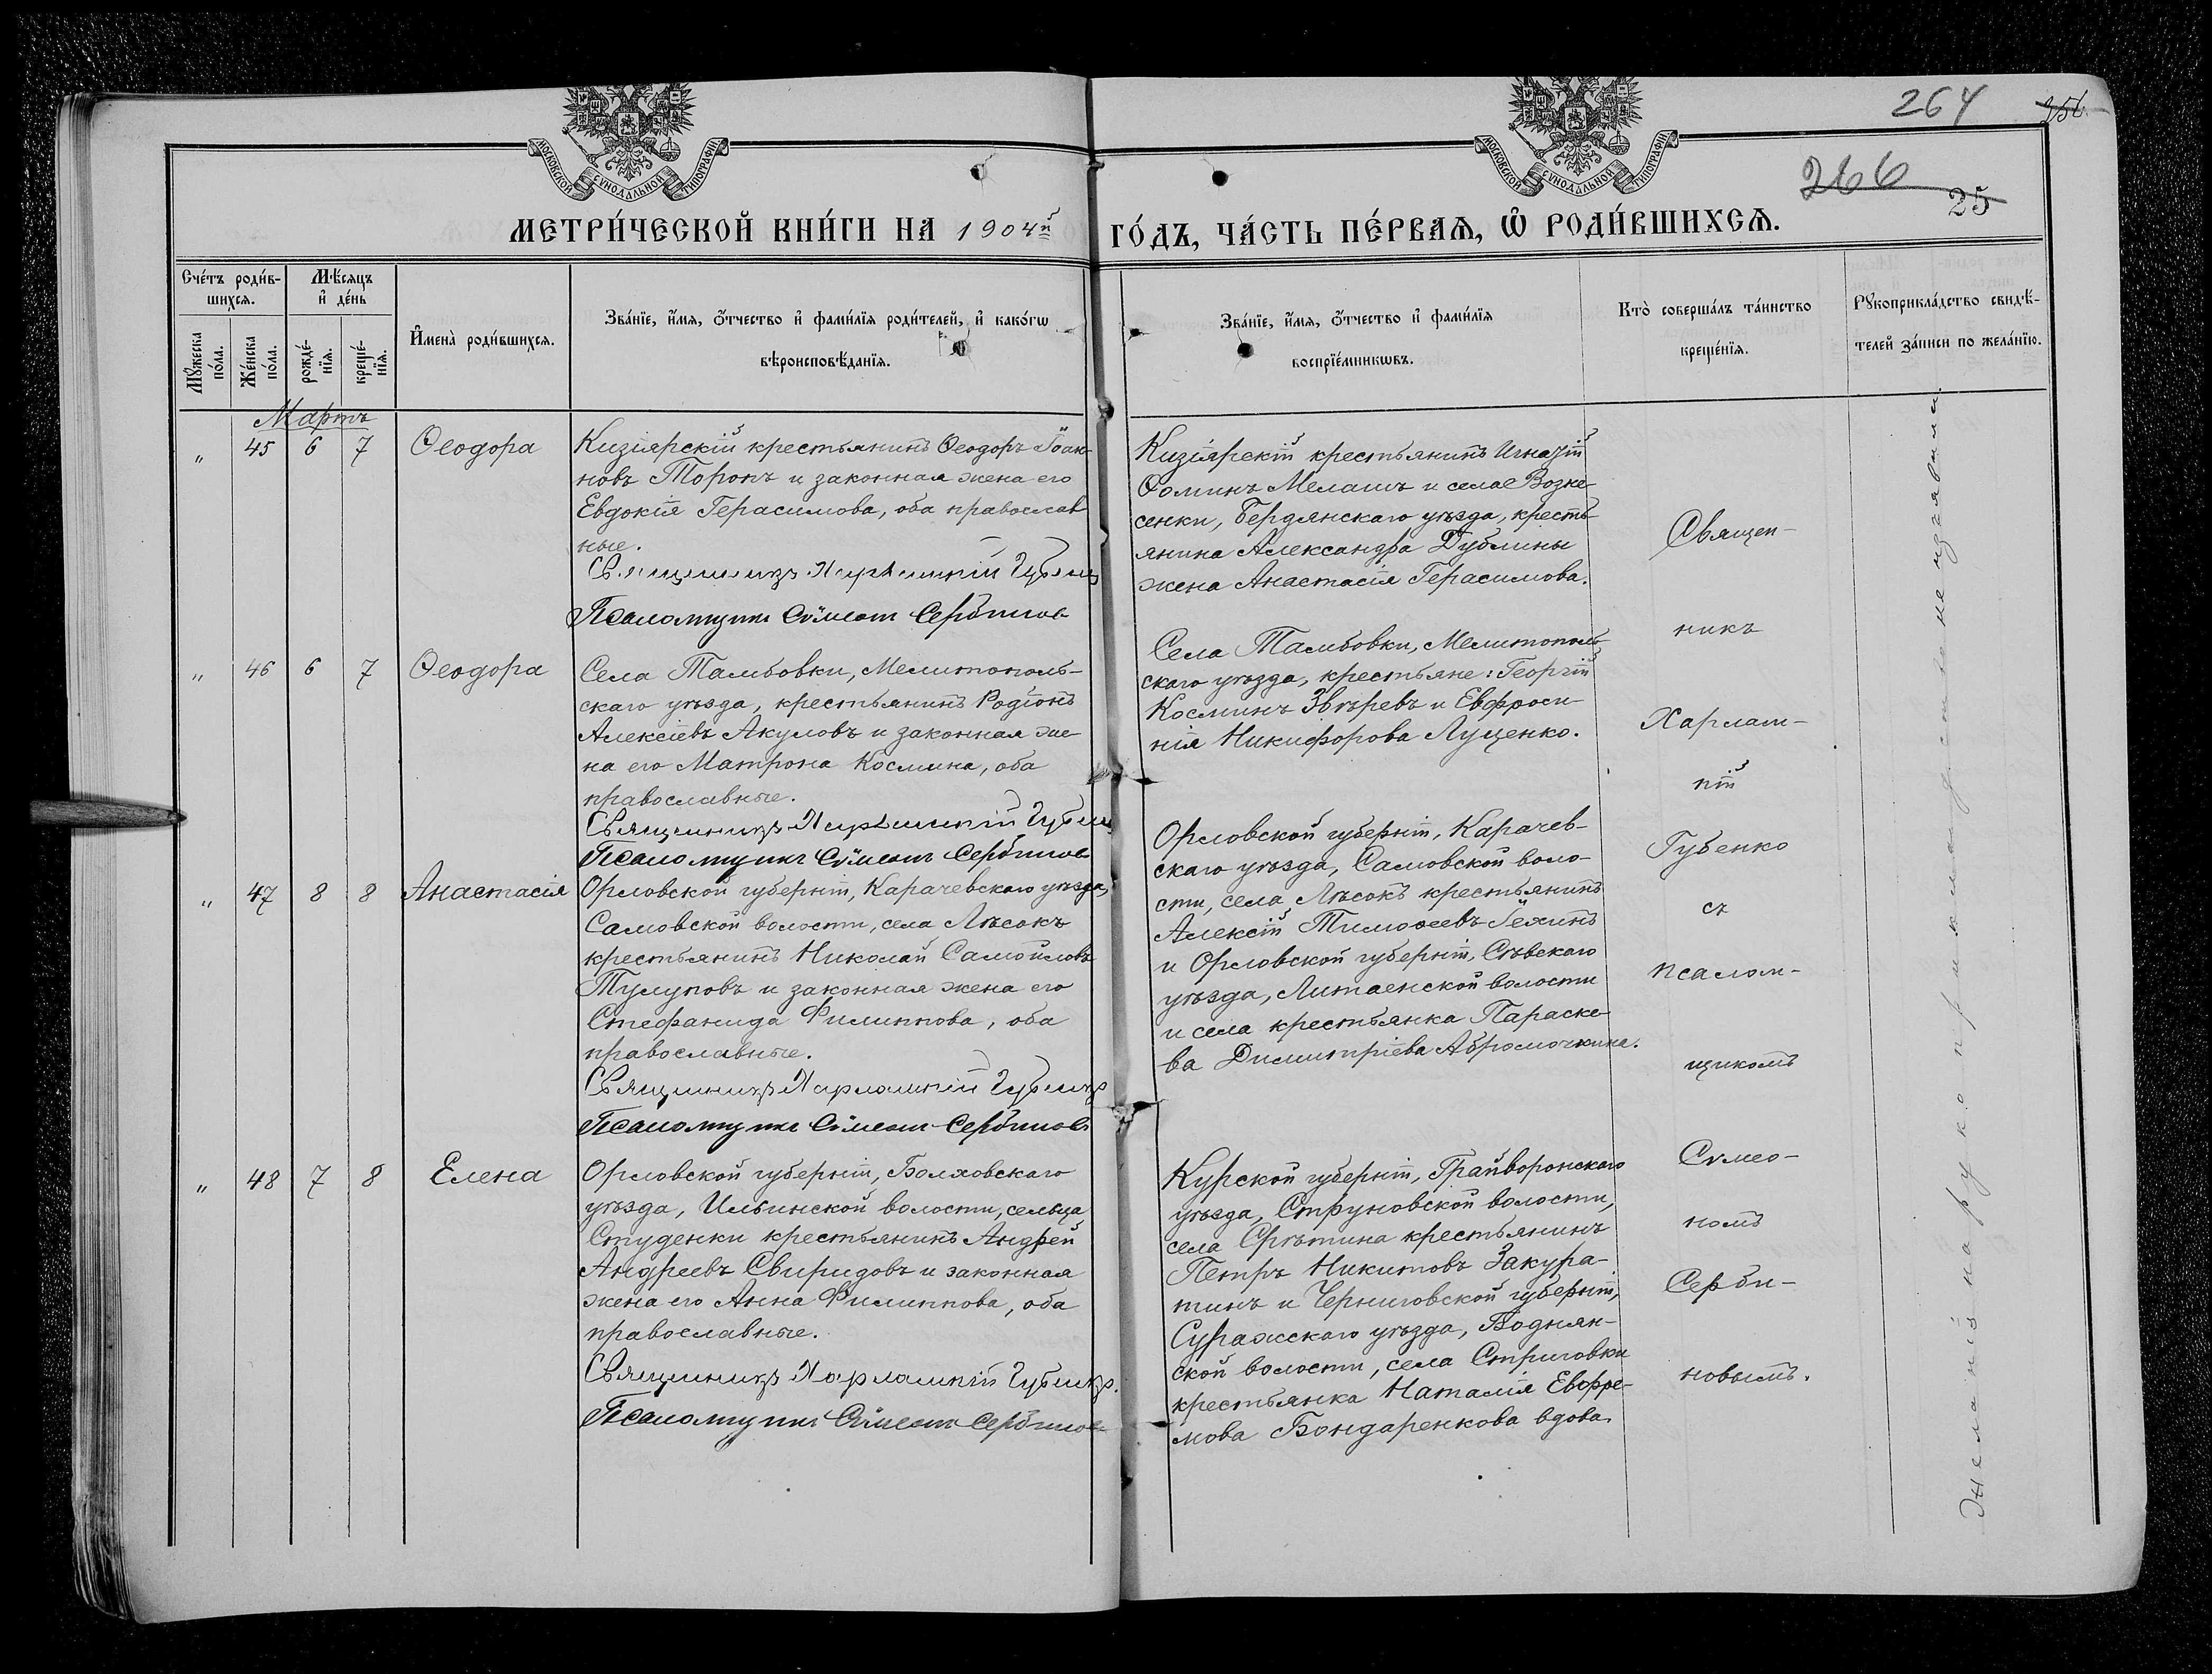 264 256
266
25
МОСКОВСКОЙ СѴНОДАЛЬНОЙ ТИПОГРАФІИ
МОСКОВСКОЙ СѴНОДАЛЬНОЙ ТИПОГРАФІИ
МЕТРИ́ЧЕСКОЙ КНИ́ГИ НА 1904й ГО́ДЪ, ЧА́СТЬ ПЕ́РВАѦ, Ѡ҆ РОДИ́ВШИХСѦ.
Сче́тъ роди́в-
шихсѧ.
Мꙋ́жеска
по́ла.
Же́нска
по́ла.
Мѣ́сѧцъ
и҆ де́нь
рожде́-
нїѧ.
креще́-
нїѧ.
И҆мена̀ роди́вшихсѧ.
Зва́нїе, и҆́мѧ, ѻ҆́тчество и҆ фами́лїѧ роди́телей, и҆ како́гѡ
вѣроисповѣ́данїѧ.
Зва́нїе, и҆́мѧ, ѻ҆́тчество и҆ фами́лїѧ
воспрїе́мникѡвъ.
Кто̀ соверша́лъ та́инство
креще́нїѧ.
Рꙋкоприкла́дство свидѣ́-
телей за́писи по жела́нїю.
Мартъ
" 45 6 7 Ѳеодора
Кизіярскій крестьянинъ Ѳеодоръ Іоан-
новъ Торопъ и законная жена его
Евдокія Герасимова, оба православ
ные.
Священникъ Харлампій Губенко
Псаломщикъ Сѵмеонъ Сербиновъ
Кизіярскій крестьянинъ Игнатій
Ѳоминъ Мелашъ и села Возне-
сенки, Бердянскаго уѣзда, кресть-
янина Александра Дублины
жена Анастасія Герасимова.
" 46 6 7 Ѳеодора
Села Тамбовки, Мелитополь-
скаго уѣзда, крестьянинъ Родіонъ
Алексіевъ Акуловъ и законная же-
на его Матрона Космина, оба
православные.
Священникъ Харлампій Губенко
Псаломщикъ Сѵмеонъ Сербиновъ
Села Тамбовки, Мелитополь-
скаго уѣзда, крестьяне: Георгій
Косминъ Звѣревъ и Евфроси-
нія Никифорова Луценко.
" 47 8 8 Анастасія
Орловской губерніи, Карачевскаго уѣзда,
Самовской волости, села Лѣсокъ
крестьянинъ Николай Самойловъ
Тулуповъ и законная жена его
Стефанида Филиппова, оба
православные.
Священникъ Харлампій Губенко
Псаломщикъ Сѵмеонъ Сербиновъ
Орловской губерніи, Карачев-
скаго уѣзда, Самовской воло-
сти, села Лѣсокъ крестьянинъ
Алексій Тимоѳеевъ
и Орловской губерніи, Сѣвскаго
уѣзда, волости
и села крестьянка Параске-
ва Димитріева Абромочкина.
" 48 7 8 Елена
Орловской губерніи, Болховскаго
уѣзда, Ильинской волости, сельца
Студенки крестьянинъ Андрей
Андреевъ Свиридовъ и законная
жена его Анна Филиппова, оба
православные.
Священникъ Харлампій Губенко.
Псаломщикъ Сѵмеонъ Сербиновъ
Курской губерніи, Грайворонскаго
уѣзда, Стригуновской волости,
села крестьянинъ
Петръ Никитовъ Закура-
тинъ и Черниговской губерніи,
Суражскаго уѣзда, Воднян-
ской волости, села Стриговки
крестьянка Наталія Евфре-
мова Бондаренкова вдова.
Священ-
никъ
Харлам-
пій
Губенко
съ
псалом-
щикомъ
Сѵмео-
номъ
Серби-
новымъ.
Желанія на рукоприкладство не изъявили.